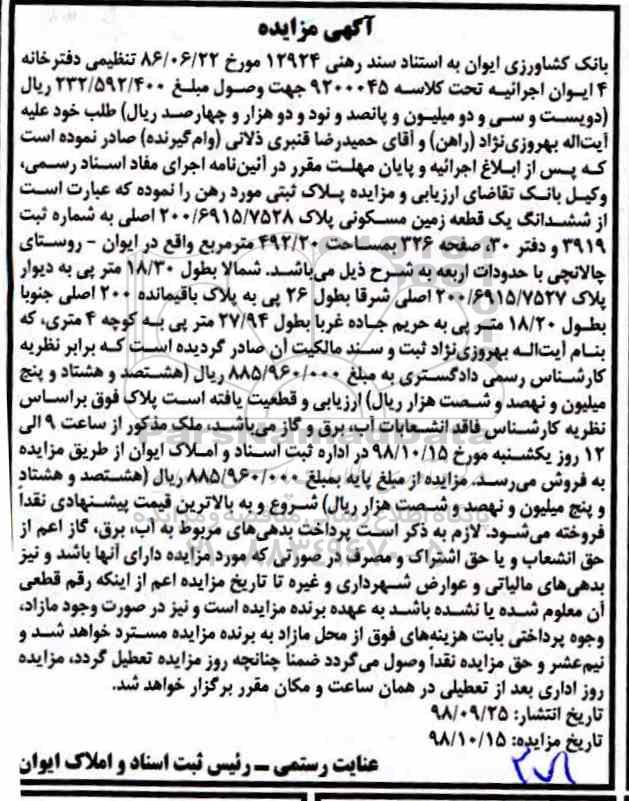 آگهی مزایده
بانک کشاورزی ایوان به استناد سند رهنی ۱۲۹۲۴ مورخ ۸۶/۰۶/۲۲ تنظیمی دفترخانه
۴ ایوان اجرائیه تحت کلاسه ۹۲۰۰۰۴۵ جهت وصول مبلغ ۲۳۲/۵۹۲/۴۰۰ ریال
(دویست و سی و دو میلیون و پانصد و نود و دو هزار و چهارصد ریال) طلب خود علیه
آیت‌اله بهروزی‌نژاد (راهن) و آقای حمیدرضا قنبری ذلانی (وام‌گیرنده) صادر نموده است
که پس از ابلاغ اجرائیه و پایان مهلت مقرر در آئین‌نامه اجرای مفاد اسناد رسمی،
وکیل بانک تقاضای ارزیابی و مزایده پلاک ثبتی مورد رهن را نموده که عبارت است
از ششدانگ یک قطعه زمین مسکونی پلاک ۲۰۰/۶۹۱۵/۷۵۲۸ اصلی به شماره ثبت
۳۹۱۹ و دفتر ۳۰، صفحه ۳۲۶ بمساحت ۴۹۲/۲۰ مترمربع واقع در ایوان - روستای
چالانچی با حدودات اربعه به شرح ذیل می‌باشد. شمالا بطول ۱۸/۳۰ متر پی به دیوار
پلاک ۲۰۰/۶۹۱۵/۷۵۲۷ اصلی شرقا بطول ۲۶ پی به پلاک باقیمانده ۲۰۰ اصلی جنوبا
بطول ۱۸/۲۰ متر پی به حریم جاده غربا بطول ۲۷/۹۴ متر پی به کوچه ۴ متری، که
بنام آیت‌اله بهروزی‌نژاد ثبت و سند مالکیت آن صادر گردیده است که برابر نظریه
کارشناس رسمی دادگستری به مبلغ ۸۸۵/۹۶۰/۰۰۰ ریال (هشتصد و هشتاد و پنج
میلیون و نهصد و شصت هزار ریال) ارزیابی و قطعیت یافته است پلاک فوق براساس
نظریه کارشناس فاقد انشعابات آب، برق و گاز می‌باشد، ملک مذکور از ساعت ۹ الی
۱۲ روز یکشنبه مورخ ۹۸/۱۰/۱۵ در اداره ثبت اسناد و املاک ایوان از طریق مزایده
به فروش می‌رسد. مزایده از مبلغ پایه بمبلغ ۸۸۵/۹۶۰/۰۰۰ ریال (هشتصد و هشتاد
و پنج میلیون و نهصد و شصت هزار ریال) شروع و به بالاترین قیمت پیشنهادی نقداً
فروخته می‌شود. لازم به ذکر است پرداخت بدهی‌های مربوط به آب، برق، گاز اعم از
حق انشعاب و یا حق اشتراک و مصرف در صورتی که مورد مزایده دارای آنها باشد و نیز
بدهی‌های مالیاتی و عوارض شهرداری و غیره تا تاریخ مزایده اعم از اینکه رقم قطعی
آن معلوم شده یا نشده باشد به عهده برنده مزایده است و نیز در صورت وجود مازاد،
وجوه پرداختی بابت هزینه‌های فوق از محل مازاد به برنده مزایده مسترد خواهد شد و
نیم‌عشر و حق مزایده نقداً وصول می‌گردد ضمناً چنانچه روز مزایده تعطیل گردد، مزایده
روز اداری بعد از تعطیلی در همان ساعت و مکان مقرر برگزار خواهد شد.
تاریخ انتشار: ۹۸/۰۹/۲۵
تاریخ مزایده: ۹۸/۱۰/۱۵
عنایت رستمی ــ رئیس ثبت اسناد و املاک ایوان